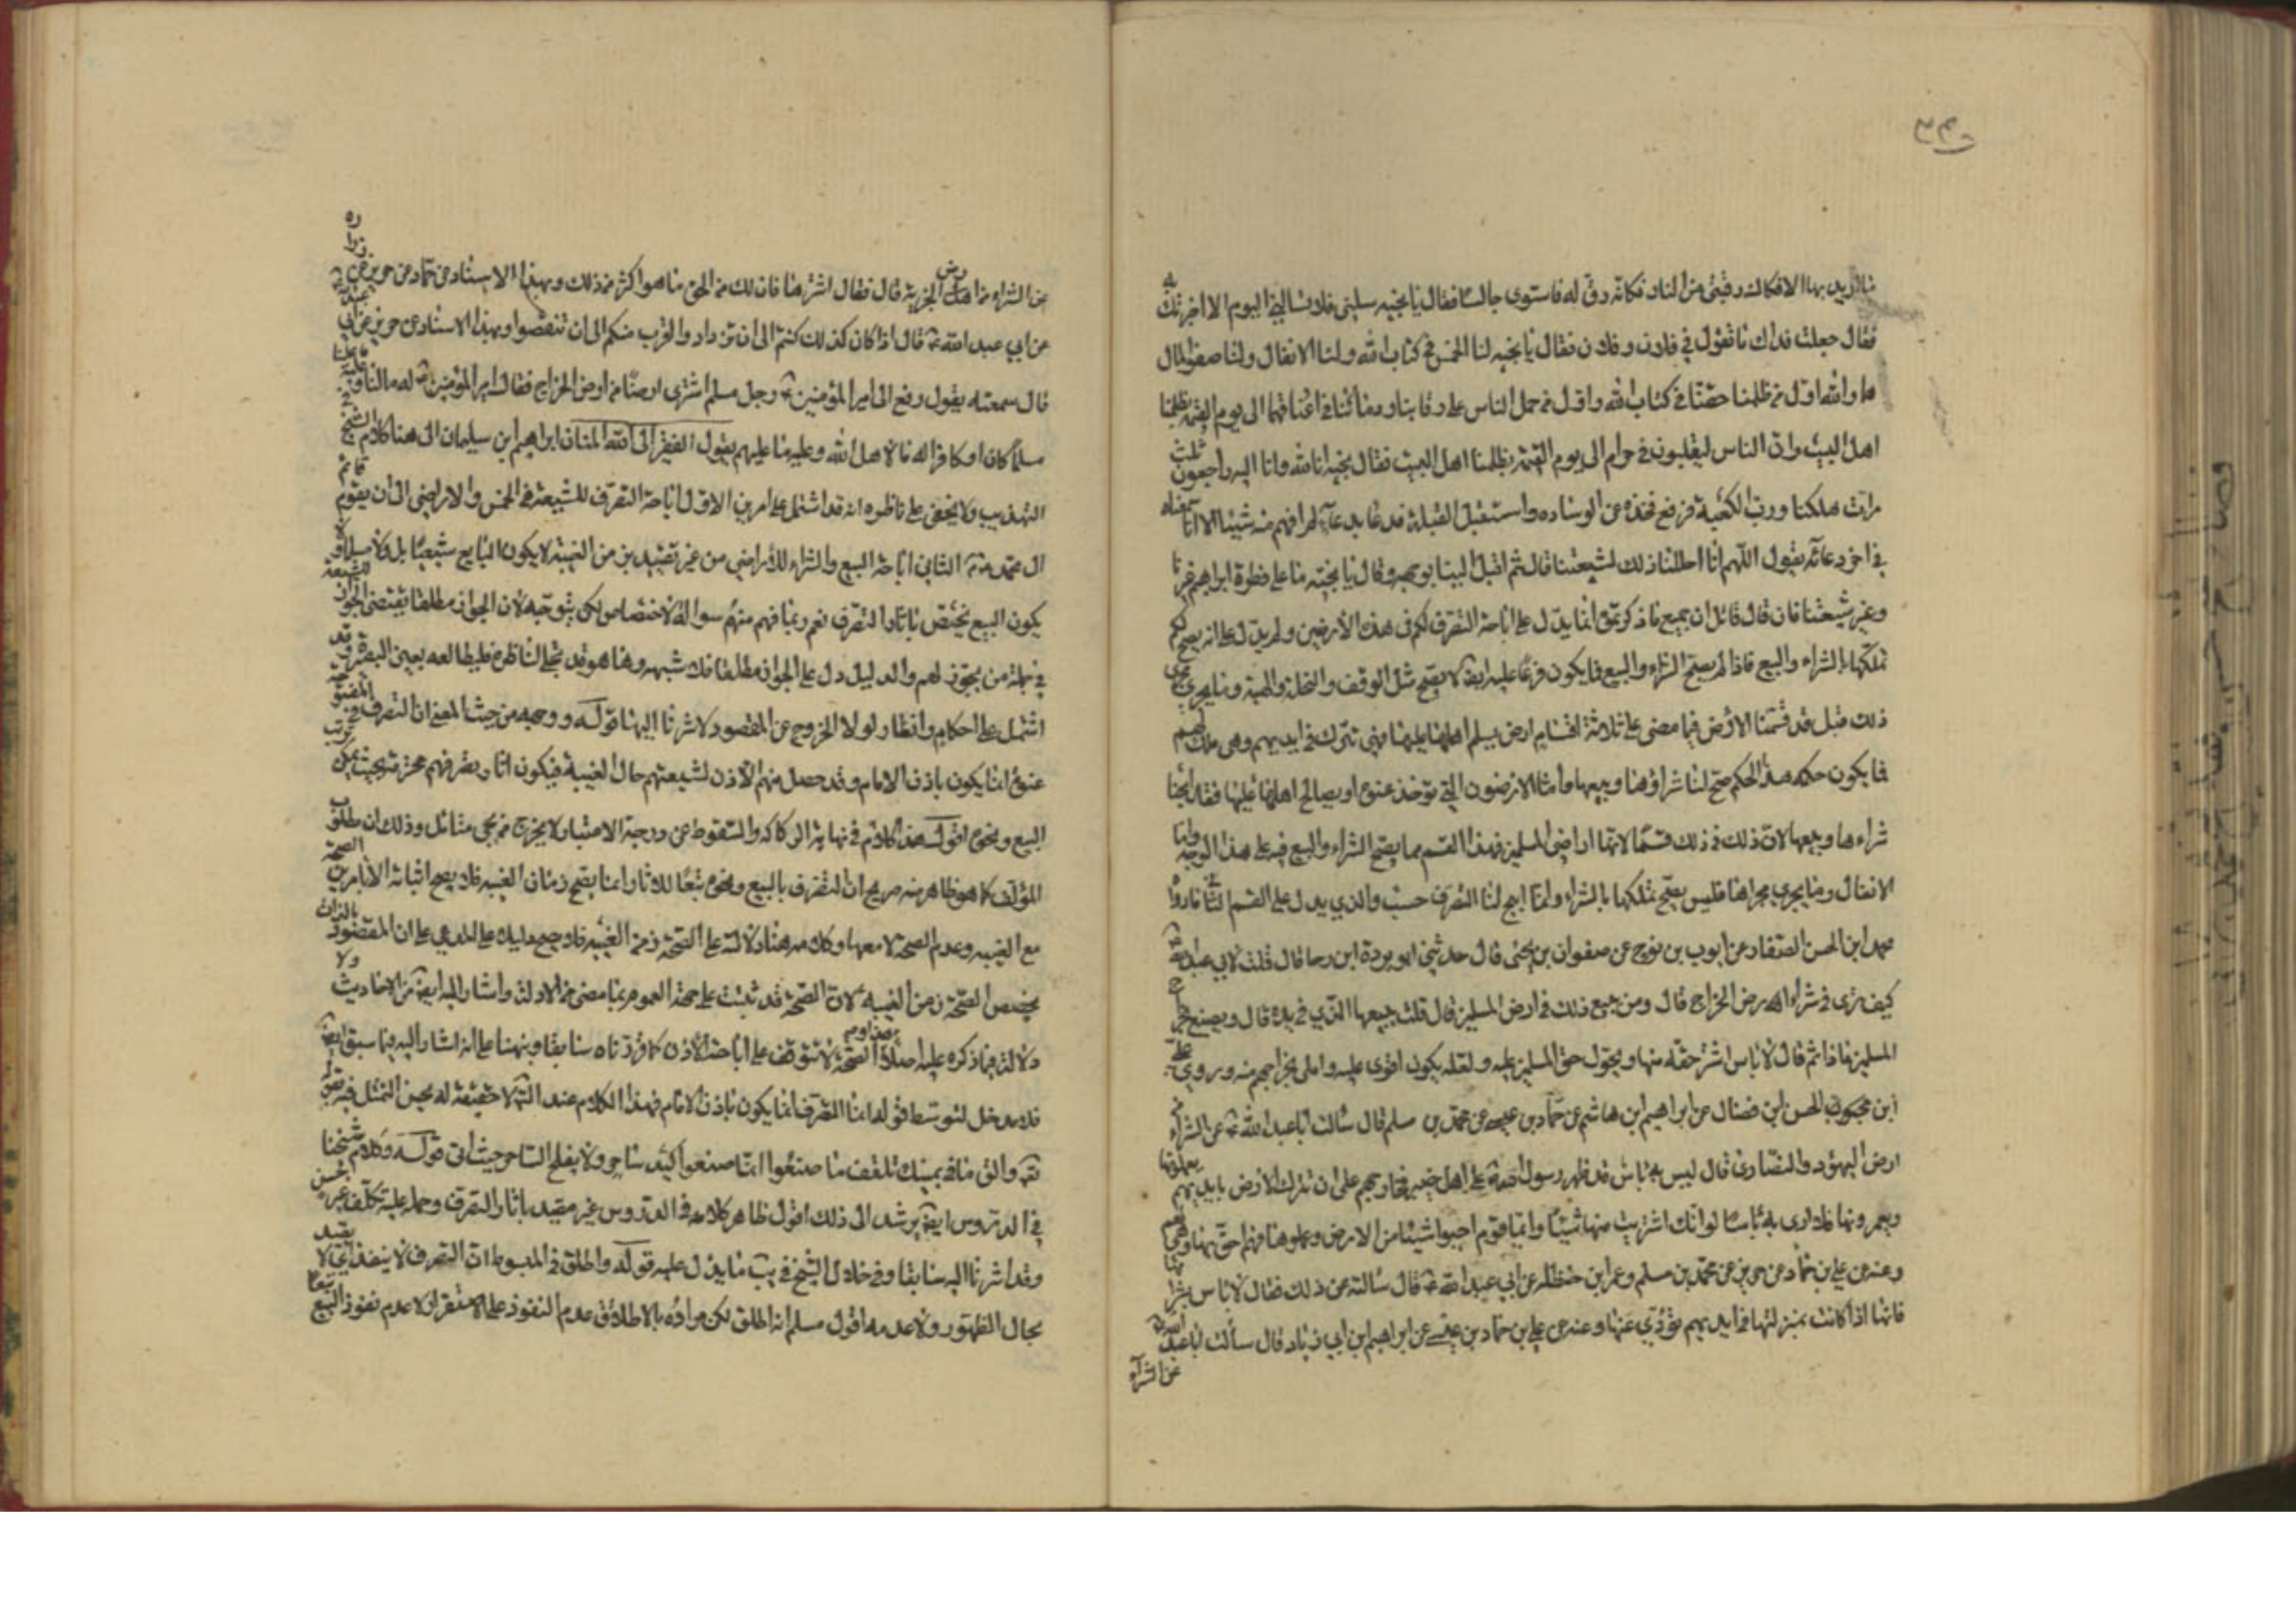 ما اريد بها الا فكاك رقبتي من النار فكانه رق له فاستوى جالسا فقال يا نجيه سلني فلا تسالني اليوم الا اخبرتك به
فقال جعلت فداك ما تقول في فلان وفلان فقال يا نجيه لنا الخمس في كتاب الله ولنا الانفال ولنا صفو المال
هما والله اول من ظلمنا حقنا في كتاب الله واول من حمل الناس على رقابنا ودمائنا في اعناقهما الى يوم القيمة بظلمنا
اهل البيت وان الناس ليقلبون في حرام الى يوم القيمة بظلمنا اهل البيت فقال نجيه انا لله وانا اليه راجعون ثلث
مرات هلكنا ورب الكعبة فرفع فخذه عن الوساده واستقبل القبلة فدعا بدعاء لم افهم منه شيئا الا انا سمعناه
في اخر دعائه يقول اللهم انا احللنا ذلك لشيعتنا قال ثم اقبل الينا بوجهه وقال يا نجيه ما على فطرة ابراهيم غيرنا
وغير شيعتنا فان قال قائل ان جميع ما ذكرتموه انما يدل على اباحة التصرف لكم في هذه الارضين ولم يدل على انه يصح لكم
تملكها بالشراء والبيع فاذا لم يصح الشراء والبيع فما يكون فرعا عليه ايضا لا يصح مثل الوقف والنحلة والهبة وما يجري مجرى
ذلك قيل قد قسمنا الارض فيما مضى على ثلاثة اقسام ارض يسلم اهلها عليها فهي تترك في ايديهم وهي ملك لهم
فما يكون حكمه هذا الحكم صح لنا شراؤها وبيعها واما الارضون التي تؤخذ عنوة او يصالح اهلها عليها فقد ابحنا
شراءها وبيعها لان لنا في ذلك قسما لانها اراضي المسلمين فهذا القسم مما يصح الشراء والبيع فيه على هذا الوجه واما
الانفال وما يجري مجراها فليس يصح تملكها بالشراء وانما ابيح لنا التصرف حسب والذي يدل على القسم الثاني ما رواه
محمد ابن الحسن الصفار عن ايوب بن نوح عن صفوان بن يحيى قال حدثني ابو بردة ابن رجا قال قلت لابي عبد الله ع
كيف ترى في شراء ارض الخراج قال ومن يبيع ذلك في ارض المسلمين قال قلت يبيعها الذي في يده قال ويصنع بخراج
المسلمين ماذا ثم قال لا باس اشتر حقه منها ويحول حق المسلمين عليه ولعله يكون اقوى عليه واملى بخراجهم منه وروى علي
ابن الحسن ابن فضال عن ابراهيم ابن هاشم عن حماد بن عيسى عن محمد بن مسلم قال سالت ابا عبد الله ع عن الشراء من
ارض اليهود والنصارى قال ليس به باس قد ظهر رسول الله ص على اهل خيبر فخارجهم على ان تترك الارض بايديهم يعملونها
ويعمرونها فلا ارى بها باسا لو انك اشتريت منها شيئا وايما قوم احيوا شيئا من الارض وعملوها فهم احق بها وهي لهم
وعنه عن علي بن حماد عن حريز عن محمد بن مسلم وعمر ابن حنظله عن ابي عبد الله ع قال سالته عن ذلك فقال لا باس بشرائها
فانها اذا كانت بمنزلتها في ايديهم تؤدي عنها وعنه عن علي بن حماد بن عيسى عن ابراهيم ابن ابي زياد قال سالت ابا عبد الله ع
عن الشراء
عن الشراء من ارض الجزية قال فقال اشترها فان لك من الحق ما هو اكثر من ذلك وبهذا الاسناد عن حماد عن حريز عن زراره
عن ابي عبد الله ع قال اذا كان كذلك كنتم الى ان تزدادوا اقرب منكم الى ان تنقصوا وبهذا الاسناد عن حريز عن ابي عبد الله ع
قال سمعته يقول رفع الى امير المؤمنين ع رجل مسلم اشترى ارضا من اراض الخراج فقال امير المؤمنين ع له ما لنا وعليه ما علينا
مسلما كان او كافرا له ما لاهل الله وعليه ما عليهم يقول الفقير الى الله المنان ابراهيم ابن سليمان الى هنا كلام الشيخ في
التهذيب ولا يخفى على ناظره انه قد اشتمل على امرين الاول اباحة التصرف للشيعة في الخمس والاراضي الى ان يقوم قائم
ال محمد ص الثاني اباحة البيع والشراء للاراضي من غير تقييد بزمن الغيبة لا يكون البايع شيعيا بل ولا مسلما ولا
يكون البيع يختص باثار التصرف نعم ربما فهم منهم سواله الاختصاص لكن يتوجه لان الجواز مطلقا يقتضى الجواز للشيعة
في جملة من يجوز لهم والدليل دل على الجواز مطلقا فلا شبهه وها هو قد تجلى لناظره فليطالعه بعين البصيرة وقد
اشتمل على احكام وانظار لولا الخروج عن المقصود لاشرنا اليها قوله ووجهه من حيث المعنى ان التصرف في المفتوحة
عنوة انما يكون باذن الامام وقد حصل منهم الاذن لشيعتهم حال الغيبة فيكون اثار تصرفهم محترمة بحيث يمكن ترتب
البيع ونحوه اقول هذا كلام في نهاية الركاكه والسقوط عن درجة الاعتبار لا يخرج من مجي متامل وذلك ان مطلوب
المؤلف كما هو ظاهر منه صريح ان التصرف بالبيع ونحوه تبعا للاثار انما يصح زمان الغيبه فلا يصح اثباته الا بامرين الصحة
مع الغيبه وعدم الصحة لا معها وكلامه هنا دلالة على الصحة زمن الغيبه فلا وجه لدليله على المدعى على ان المقصود بالذات
يخصص الصحة زمن الغيبه لان الصحة قد ثبتت على جهة العموم بما مضى من الادلة واشار اليه ايضا من الاحاديث ولا
دلالة فيما ذكره عليه اصلا اذ الصحة لا تتوقف على اباحة الاذن كما قررناه سابقا ونبهنا على انه اشار اليه فيما سبق ايضا
فلا مدخل لتوسط قوله انما التصرف انما يكون باذن الامام فهذا الكلام عند التأمل لا حقيقة له يحسن التمثل فيه بقوله
تعالى والق ما في يمينك تلقف ما صنعوا انما صنعوا كيد ساحر ولا يفلح الساحر حيث اتى قوله وكلام شيخنا
في الدروس ايضا يرشد الى ذلك اقول ظاهر كلامه في الدروس غير مقيد باثار التصرف وحمله عليه تكلف غير حسن
وقد اشرنا اليه سابقا وفي خلال الشيخ في يب ما يدل عليه قوله واطلق في المبسوط ان التصرف لا ينفذ اي لا يقيد
بحال الظهور ولا عدمه اقول مسلم انه اطلق لكن مراده بالاطلاق عدم النفوذ على الاستقرار لا عدم نفوذ البيع تبعا